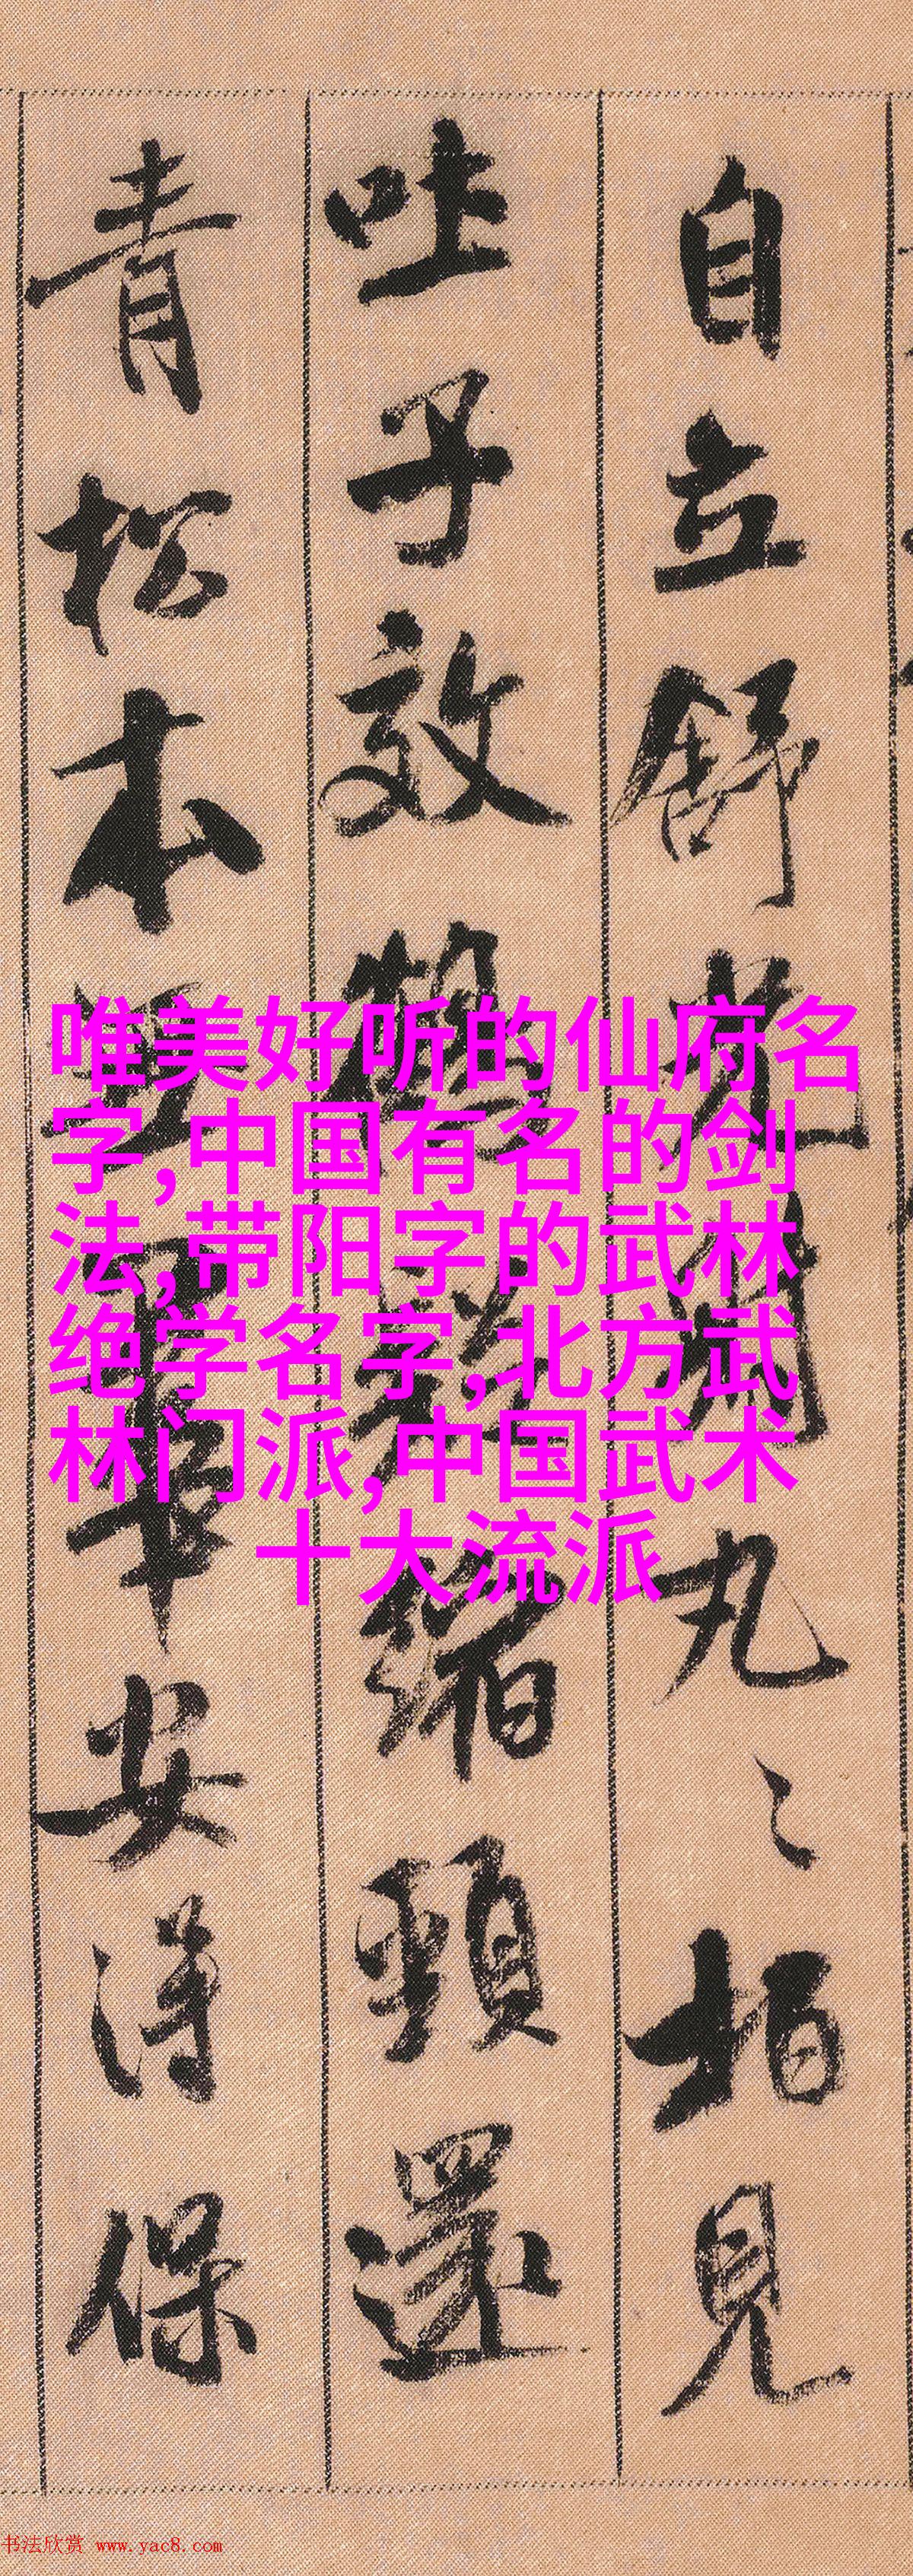 自立舒光射丸〻柏見
吐子效鶴疑縮頸還
青松本無華安得保
唯美好听的仙府名
字,中国有名的剑
法,带阳字的武林
绝学名字,北方武
林门派,中国武术
十大流派
书法欣赏 www.yac8.com